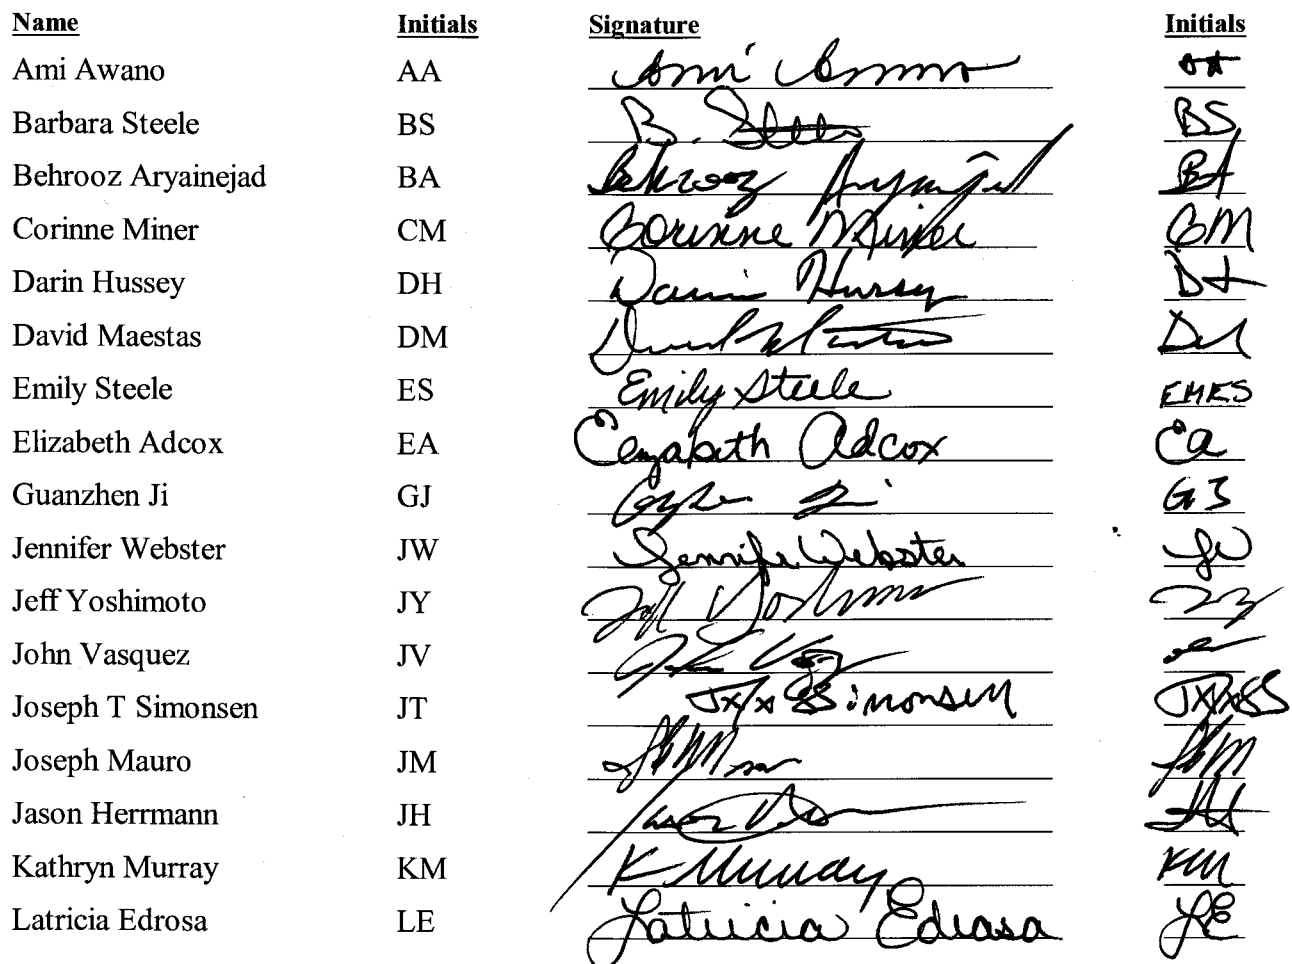 Name Initials Signature Initials
Ami Awano AA Ami
Barbara Steele BS B. Steele BS
Behrooz Aryainejad BA Behrooz Aryainejad BA
Corinne Miner CM Corinne Miner CM
Darin Hussey DH Darin Hussey DH
David Maestas DM David Maestas DM
Emily Steele ES Emily Steele EMRS
Elizabeth Adcox EA Elizabeth Adcox EA
Guanzhen Ji GJ Ji GJ
Jennifer Webster JW Jennifer Webster JW
Jeff Yoshimoto JY Jeff Yoshimoto JY
John Vasquez JV
Joseph T Simonsen JT Simonsen
Joseph Mauro JM
Jason Herrmann JH Jason JH
Kathryn Murray KM K Murray KM
Latricia Edrosa LE Latricia Edrosa LE